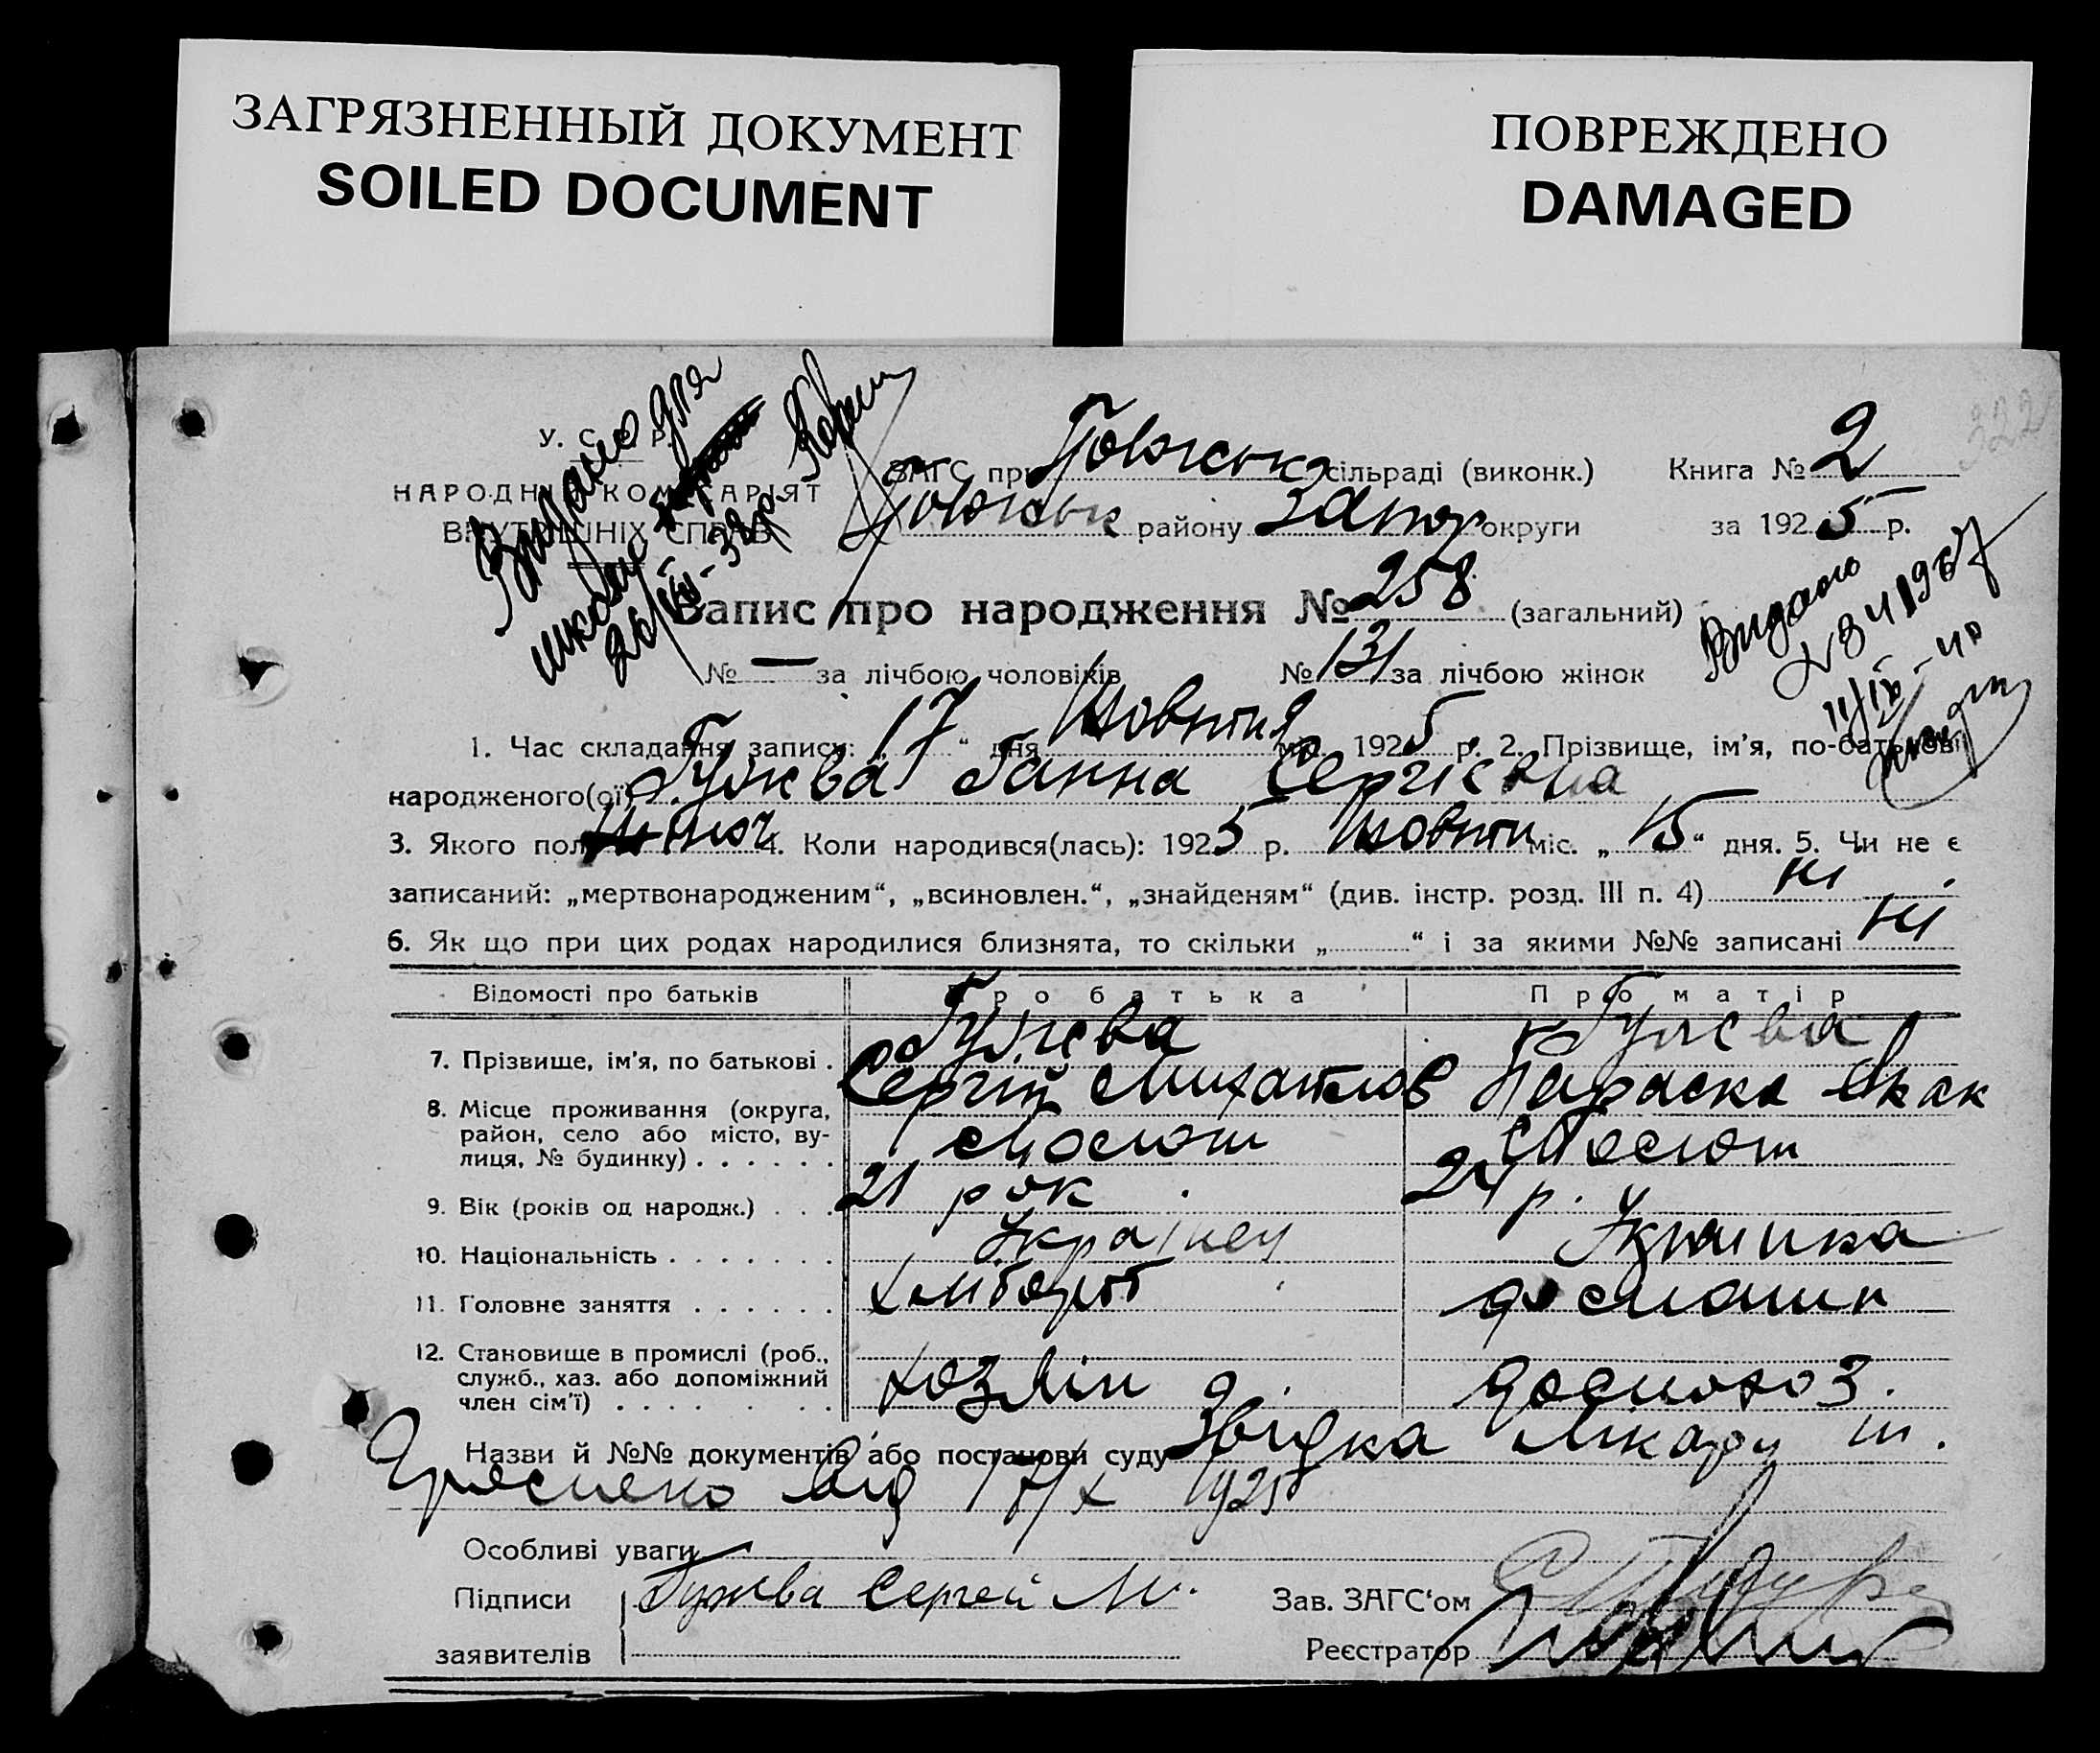 ЗАГРЯЗНЕННЫЙ ДОКУМЕНТ
SOILED DOCUMENT
ПОВРЕЖДЕНО
DAMAGED
322
У. С. Р. Р.
НАРОДНІЙ КОМІСАРІЯТ
ВНУТРІШНІХ СПРАВ
Видано для
школи
ЗАГС при сільраді (виконк.) Книга № 2
району Запор округи за 1925 р.
Запис про народження № 258 (загальний)
№ — за лічбою чоловіків № 131 за лічбою жінок
Видано
1. Час складання запису: „17“ дня Жовтня м-ця 1925 р. 2. Прізвище, ім’я, по-батькові
народженого(ої) Гужва Ганна Сергієвна
3. Якого полу жіноч 4. Коли народився(лась): 1925 р. Жовтн міс. „15“ дня. 5. Чи не є
записаний: „мертвонародженим“, „всиновлен.“, „знайденям“ (див. інстр. розд. III п. 4) ні
6. Як що при цих родах народилися близнята, то скільки „ “ і за якими №№ записані ні
Відомості про батьків Про батька Про матір
7. Прізвище, ім’я, по батькові . Гужва Сергій Михайлов Гужва Параска
8. Місце проживання (округа,
район, село або місто, ву-
лиця, № будинку) . . . . . .
9. Вік (років од народж.) . . . 21 рок 24 р.
10. Національність . . . . . . . Українец Украинка
11. Головне заняття . . . . . . хлібороб домашн
12. Становище в промислі (роб.,
служб., хаз. або допоміжний
член сім’ї) . . . . . . . .
Назви й №№ документів або постанови суду Звідка лікаря
від 17/X 1925
Особливі уваги —
Підписи Гужва Сергей М. Зав. ЗАГС‘ом
заявителів Реєстратор